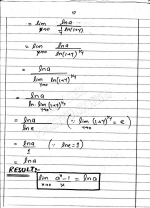 = lim y→0 lna / 1/y ln(1+y)
= lim y→0 lna / ln(1+y)^1/y
= lna / lim y→0 ln(1+y)^1/y
= lna / ln lim y→0 (1+y)^1/y
= lna / lne (∵ lim y→0 (1+y)^1/y = e)
= lna / 1 (∵ lne = 1)
= lna
RESULT:-
lim x→0 a^x - 1 / x = lna